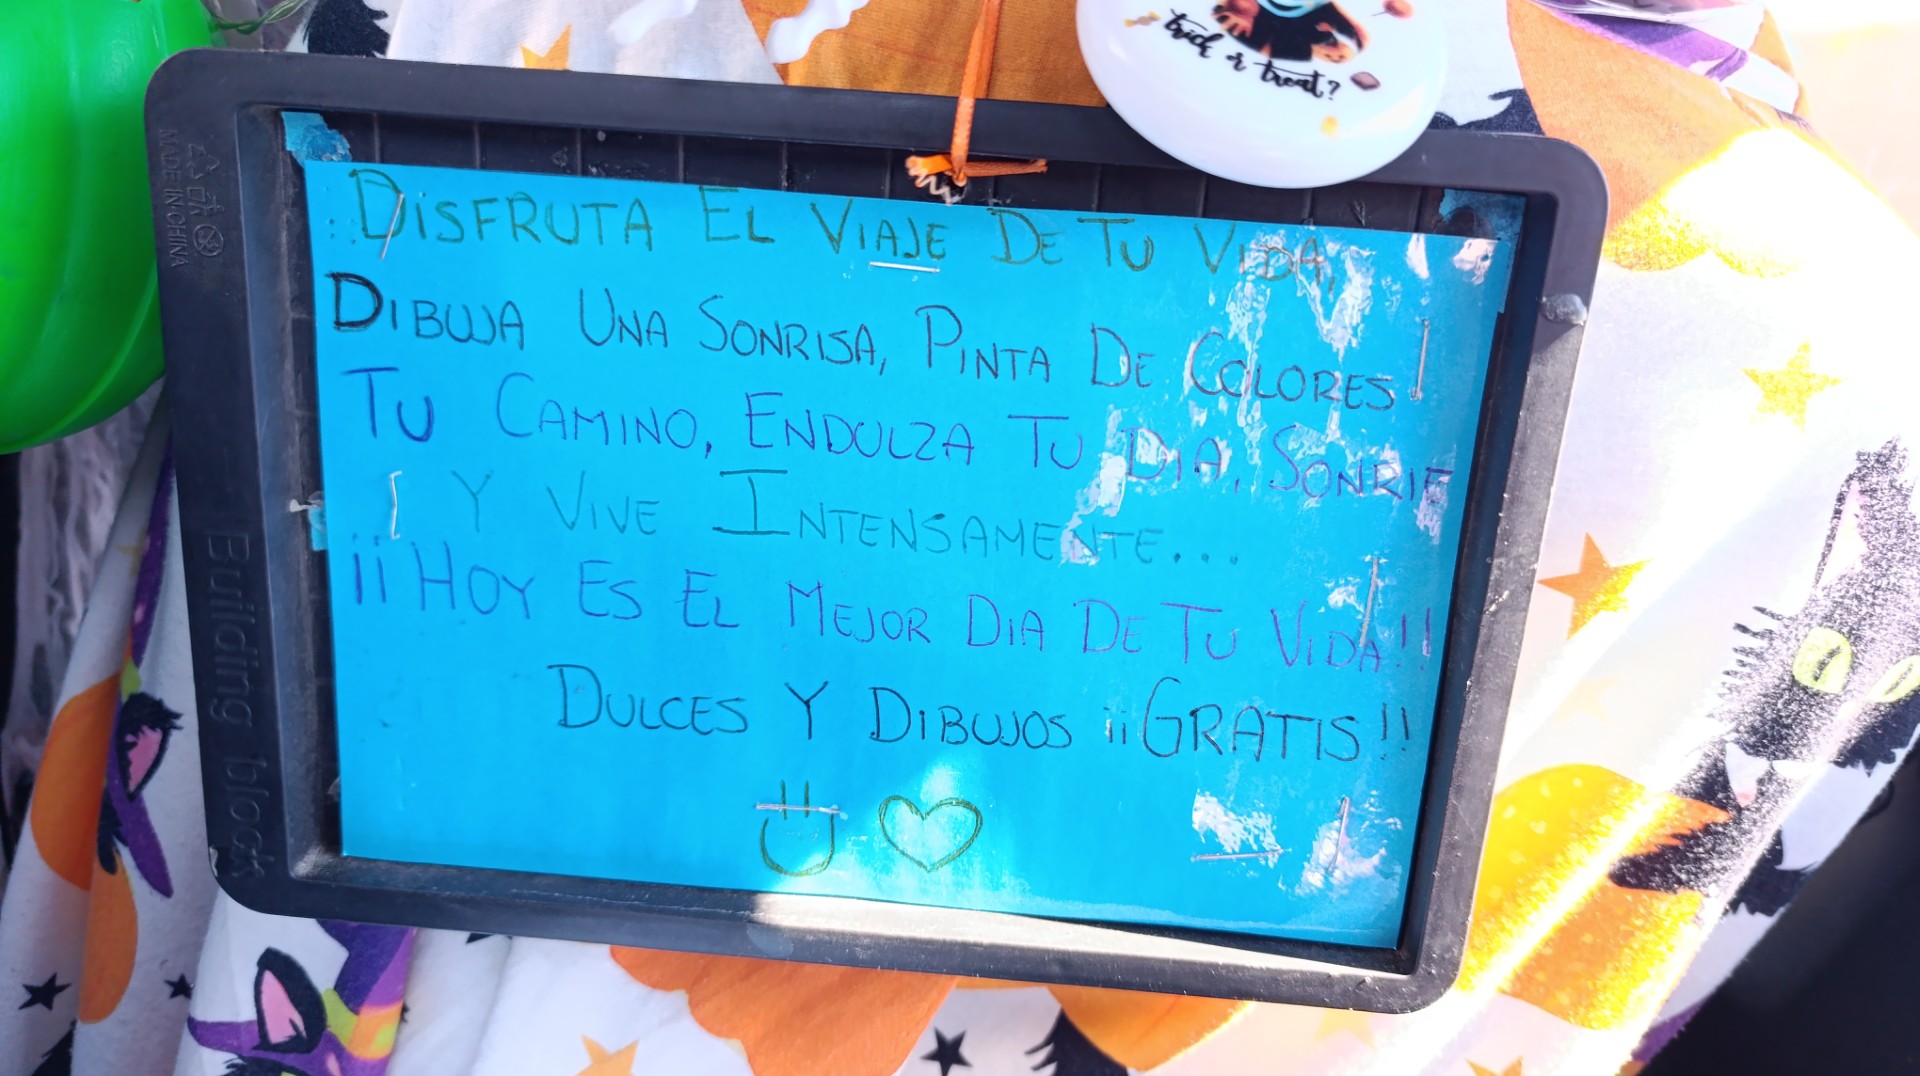 trick or treat?
DISFRUTA EL VIAJE DE TU VIDA,
DIBUJA UNA SONRISA, PINTA DE COLORES
TU CAMINO, ENDULZA TU DIA, SONRIE
Y VIVE INTENSAMENTE...
¡¡HOY ES EL MEJOR DIA DE TU VIDA!!
DULCES Y DIBUJOS ¡¡GRATIS!!
MADE IN CHINA
Building block